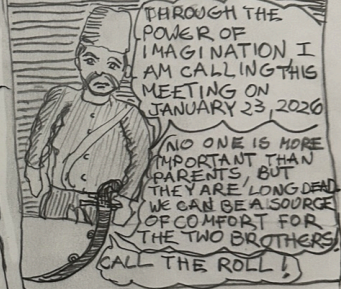 THROUGH THE
POWER OF
IMAGINATION I
AM CALLING THIS
MEETING ON
JANUARY 23, 2026
NO ONE IS MORE
IMPORTANT THAN
PARENTS, BUT
THEY ARE LONG DEAD.
WE CAN BE A SOURCE
OF COMFORT FOR
THE TWO BROTHERS!
CALL THE ROLL!